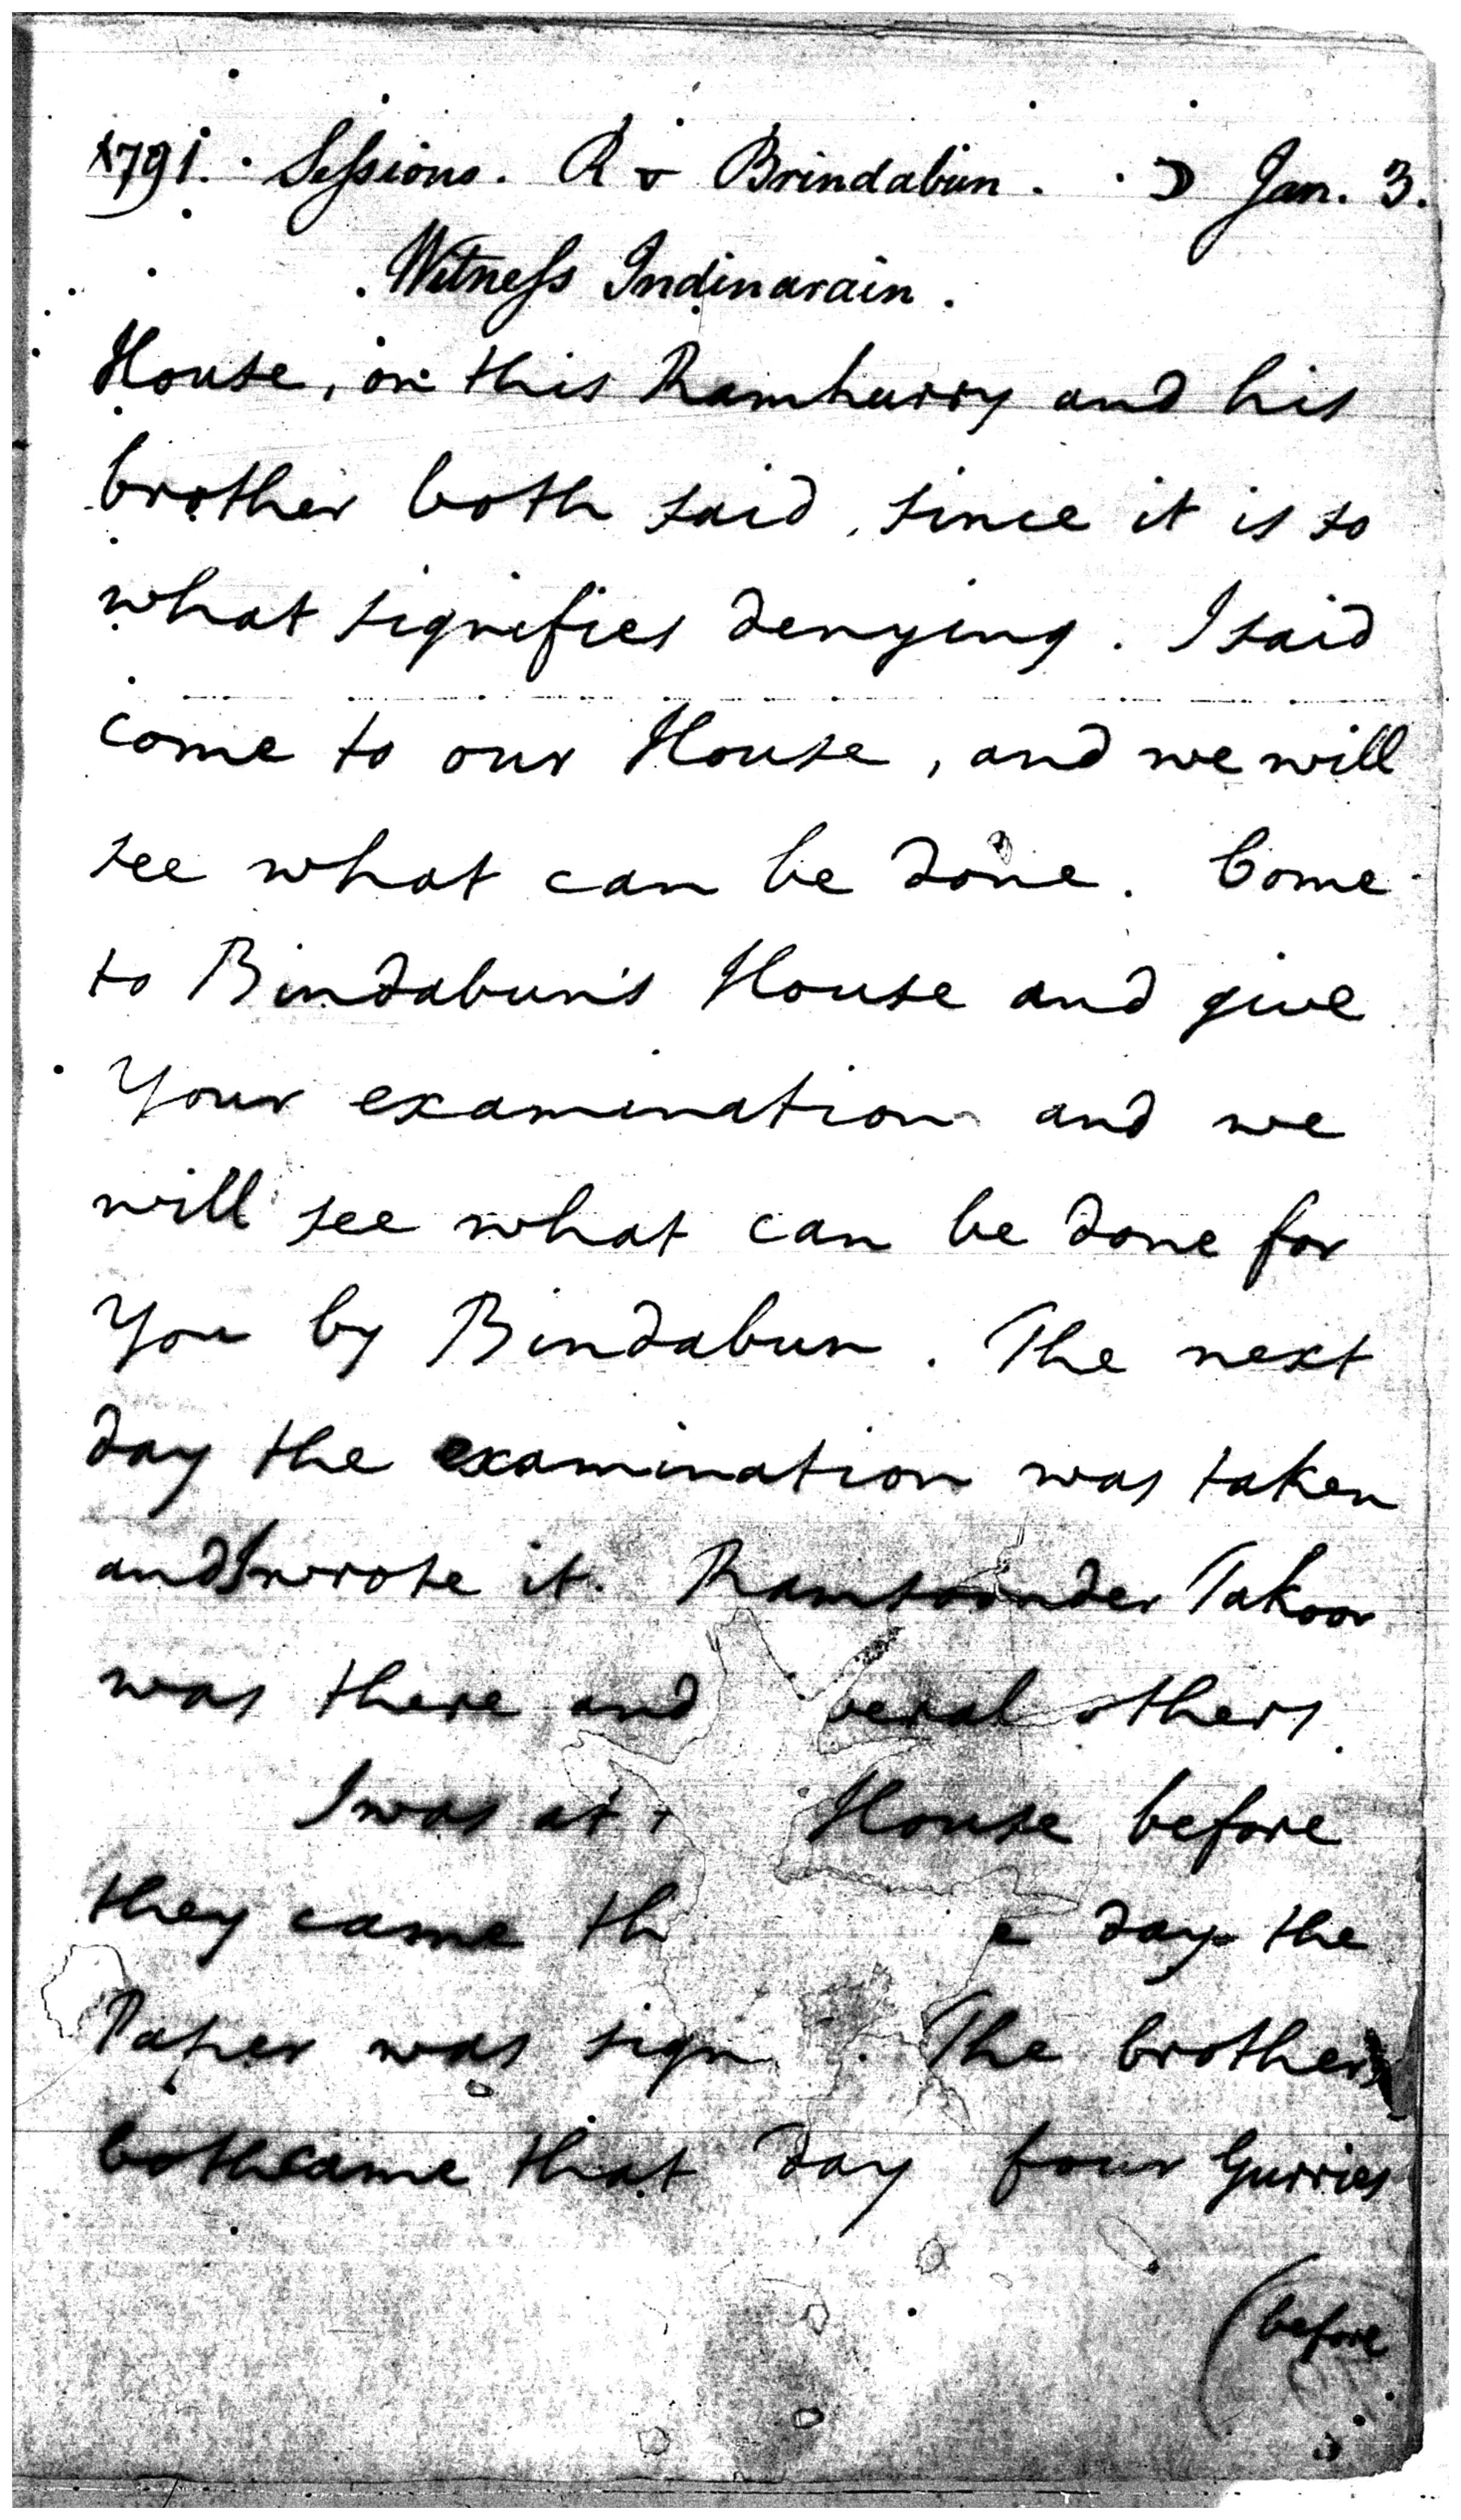 1791. Sessions. R v Brindabun. ☽ Jan. 3.
Witness Indinarain.
House, on this Ramhurry and his
brother both said, since it is so
what signifies denying. I said
come to our House, and we will
see what can be done. Come
to Bindabun's House and give
Your examination and we
will see what can be done for
You by Bindabun. The next
day the examination was taken
and I wrote it. Ramsoonder Takoor
was there and veral others.
I was at House before
they came th e day the
Paper was sign . The brothers
both came that day four Gurries
(before